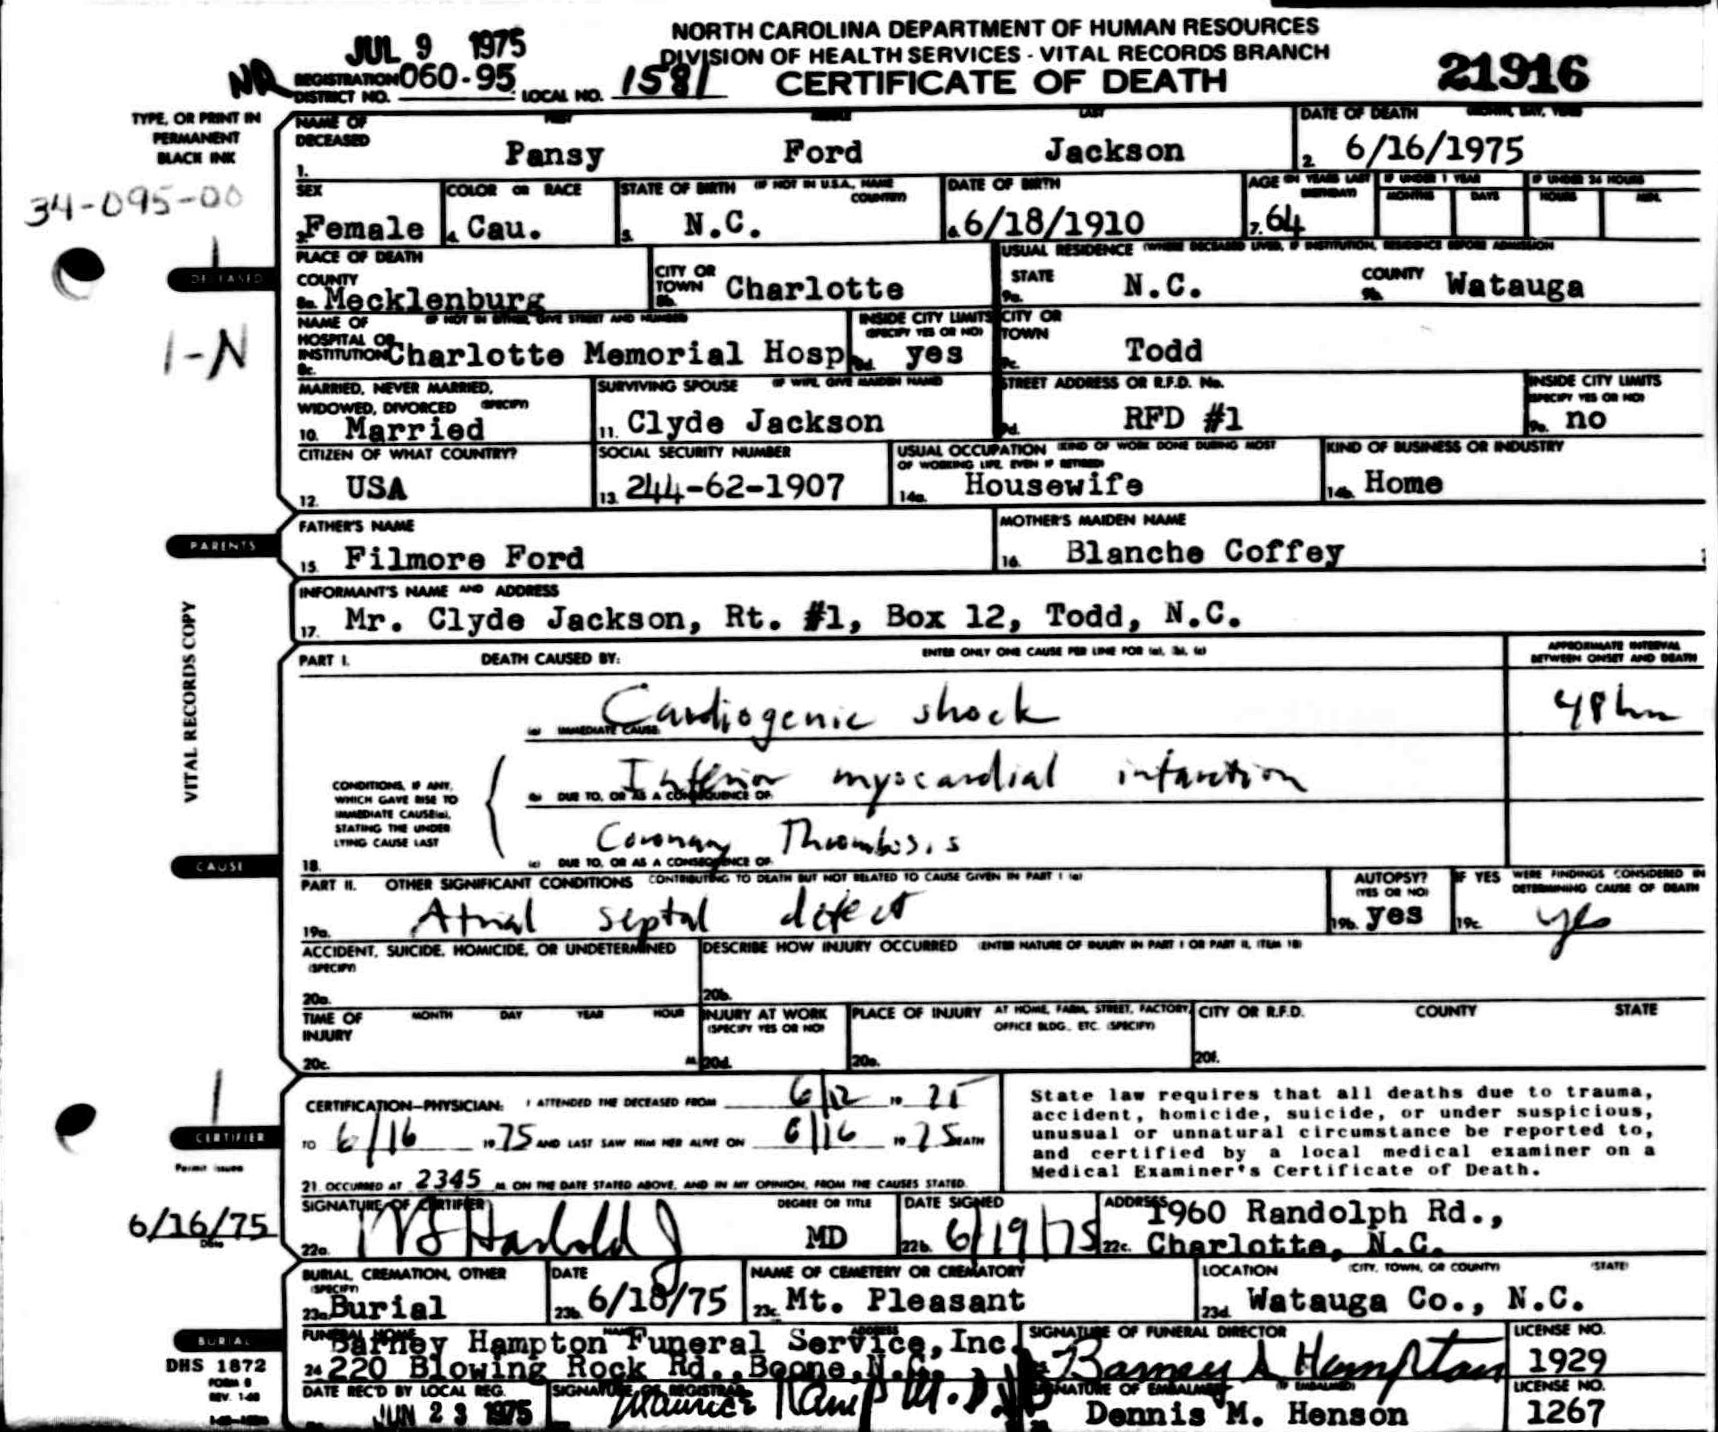 JUL 9 1975
NORTH CAROLINA DEPARTMENT OF HUMAN RESOURCES
DIVISION OF HEALTH SERVICES - VITAL RECORDS BRANCH
CERTIFICATE OF DEATH
21916
NR REGISTRATION DISTRICT NO. 060-95 LOCAL NO. 1581
TYPE, OR PRINT IN PERMANENT BLACK INK
34-095-00
NAME OF DECEASED FIRST MIDDLE LAST DATE OF DEATH MONTH, DAY, YEAR
1. Pansy Ford Jackson 2. 6/16/1975
SEX COLOR OR RACE STATE OF BIRTH (IF NOT IN U.S.A., NAME COUNTRY) DATE OF BIRTH AGE (IN YEARS LAST BIRTHDAY) IF UNDER 1 YEAR MONTHS DAYS IF UNDER 24 HOURS HOURS MIN.
3. Female 4. Cau. 5. N.C. 6. 6/18/1910 7. 64
DECEASED
PLACE OF DEATH USUAL RESIDENCE (WHERE DECEASED LIVED, IF INSTITUTION, RESIDENCE BEFORE ADMISSION
COUNTY CITY OR TOWN STATE COUNTY
8a. Mecklenburg 8b. Charlotte 9a. N.C. 9b. Watauga
1-N
NAME OF HOSPITAL OR INSTITUTION (IF NOT IN EITHER, GIVE STREET AND NUMBER) INSIDE CITY LIMITS (SPECIFY YES OR NO) CITY OR TOWN
8c. Charlotte Memorial Hosp 8d. yes 9c. Todd
MARRIED, NEVER MARRIED, WIDOWED, DIVORCED (SPECIFY) SURVIVING SPOUSE (IF WIFE, GIVE MAIDEN NAME) STREET ADDRESS OR R.F.D. No. INSIDE CITY LIMITS (SPECIFY YES OR NO)
10. Married 11. Clyde Jackson 9d. RFD #1 9e. no
CITIZEN OF WHAT COUNTRY? SOCIAL SECURITY NUMBER USUAL OCCUPATION (KIND OF WORK DONE DURING MOST OF WORKING LIFE, EVEN IF RETIRED) KIND OF BUSINESS OR INDUSTRY
12. USA 13. 244-62-1907 14a. Housewife 14b. Home
PARENTS
FATHER'S NAME MOTHER'S MAIDEN NAME
15. Filmore Ford 16. Blanche Coffey
INFORMANT'S NAME AND ADDRESS
17. Mr. Clyde Jackson, Rt. #1, Box 12, Todd, N.C.
VITAL RECORDS COPY
PART I. DEATH CAUSED BY: ENTER ONLY ONE CAUSE PER LINE FOR (a), (b), (c) APPROXIMATE INTERVAL BETWEEN ONSET AND DEATH
Cardiogenic shock 48 hrs
(a) IMMEDIATE CAUSE
CONDITIONS, IF ANY, WHICH GAVE RISE TO IMMEDIATE CAUSE(a), STATING THE UNDERLYING CAUSE LAST
Inferior myocardial infarction
(b) DUE TO, OR AS A CONSEQUENCE OF:
Coronary Thrombosis
(c) DUE TO, OR AS A CONSEQUENCE OF:
CAUSE
18.
PART II. OTHER SIGNIFICANT CONDITIONS CONTRIBUTING TO DEATH BUT NOT RELATED TO CAUSE GIVEN IN PART I (a) AUTOPSY? (YES OR NO) IF YES WERE FINDINGS CONSIDERED IN DETERMINING CAUSE OF DEATH
19a. Atrial septal defect 19b. yes 19c. yes
ACCIDENT, SUICIDE, HOMICIDE, OR UNDETERMINED (SPECIFY) DESCRIBE HOW INJURY OCCURRED (ENTER NATURE OF INJURY IN PART I OR PART II, ITEM 18)
20a. 20b.
TIME OF INJURY MONTH DAY YEAR HOUR INJURY AT WORK (SPECIFY YES OR NO) PLACE OF INJURY AT HOME, FARM, STREET, FACTORY, OFFICE BLDG., ETC. (SPECIFY) CITY OR R.F.D. COUNTY STATE
20c. M. 20d. 20e. 20f.
CERTIFIER
CERTIFICATION—PHYSICIAN: I ATTENDED THE DECEASED FROM 6/12 19 75
TO 6/16 19 75 AND LAST SAW HIM HER ALIVE ON 6/16 19 75 DEATH
21. OCCURRED AT 2345 M. ON THE DATE STATED ABOVE, AND IN MY OPINION, FROM THE CAUSES STATED.
State law requires that all deaths due to trauma,
accident, homicide, suicide, or under suspicious,
unusual or unnatural circumstance be reported to,
and certified by a local medical examiner on a
Medical Examiner's Certificate of Death.
Permit Issued
6/16/75
Date
SIGNATURE OF CERTIFIER DEGREE OR TITLE DATE SIGNED ADDRESS
22a. MD 22b. 6/19/75 22c. 1960 Randolph Rd., Charlotte, N.C.
BURIAL, CREMATION, OTHER (SPECIFY) DATE NAME OF CEMETERY OR CREMATORY LOCATION (CITY, TOWN, OR COUNTY) (STATE)
23a. Burial 23b. 6/18/75 23c. Mt. Pleasant 23d. Watauga Co., N.C.
BURIAL
FUNERAL HOME NAME ADDRESS SIGNATURE OF FUNERAL DIRECTOR LICENSE NO.
Barney Hampton Funeral Service, Inc.
24. 220 Blowing Rock Rd., Boone, N.C. Barney Hampton 1929
DHS 1872
FORM 8
REV. 1-68
DATE REC'D BY LOCAL REG. SIGNATURE OF REGISTRAR SIGNATURE OF EMBALMER (IF EMBALMED) LICENSE NO.
JUN 23 1975 Maurice Kamp M.D. Dennis M. Henson 1267